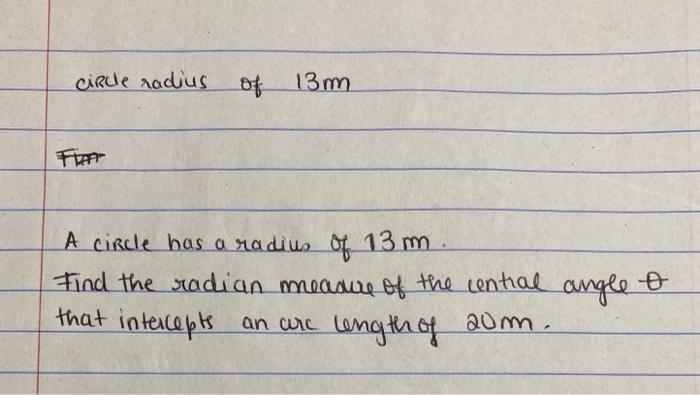 circle radius of 13m
A circle has a radius of 13 m.
Find the radian measure of the central angle θ
that intercepts an arc length of 20m.